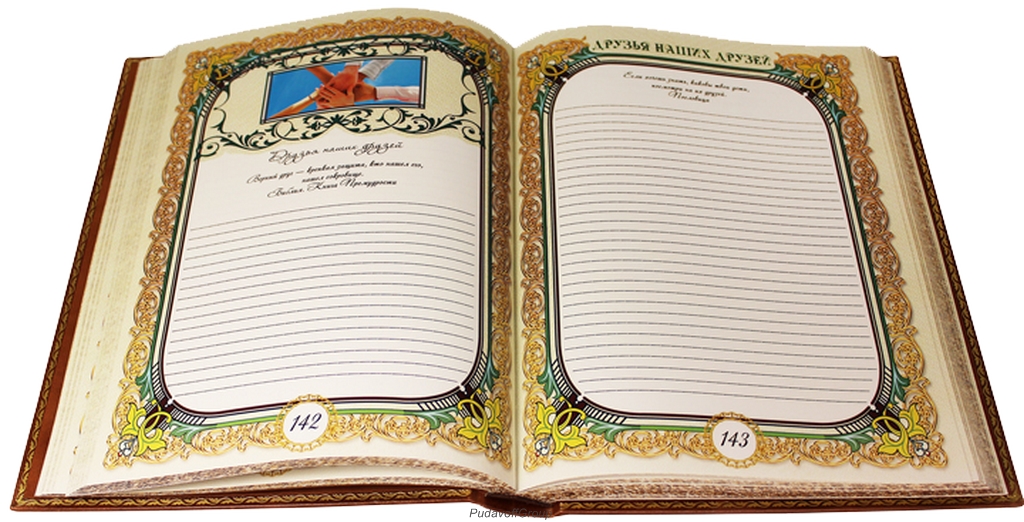 Друзья наших друзей
Верный друг — крепкая защита, кто нашел его,
нашел сокровище.
Библия. Книга Премудрости
142
ДРУЗЬЯ НАШИХ ДРУЗЕЙ
Если хочешь знать, каковы твои дела,
посмотри на их друзей.
Пословица
143